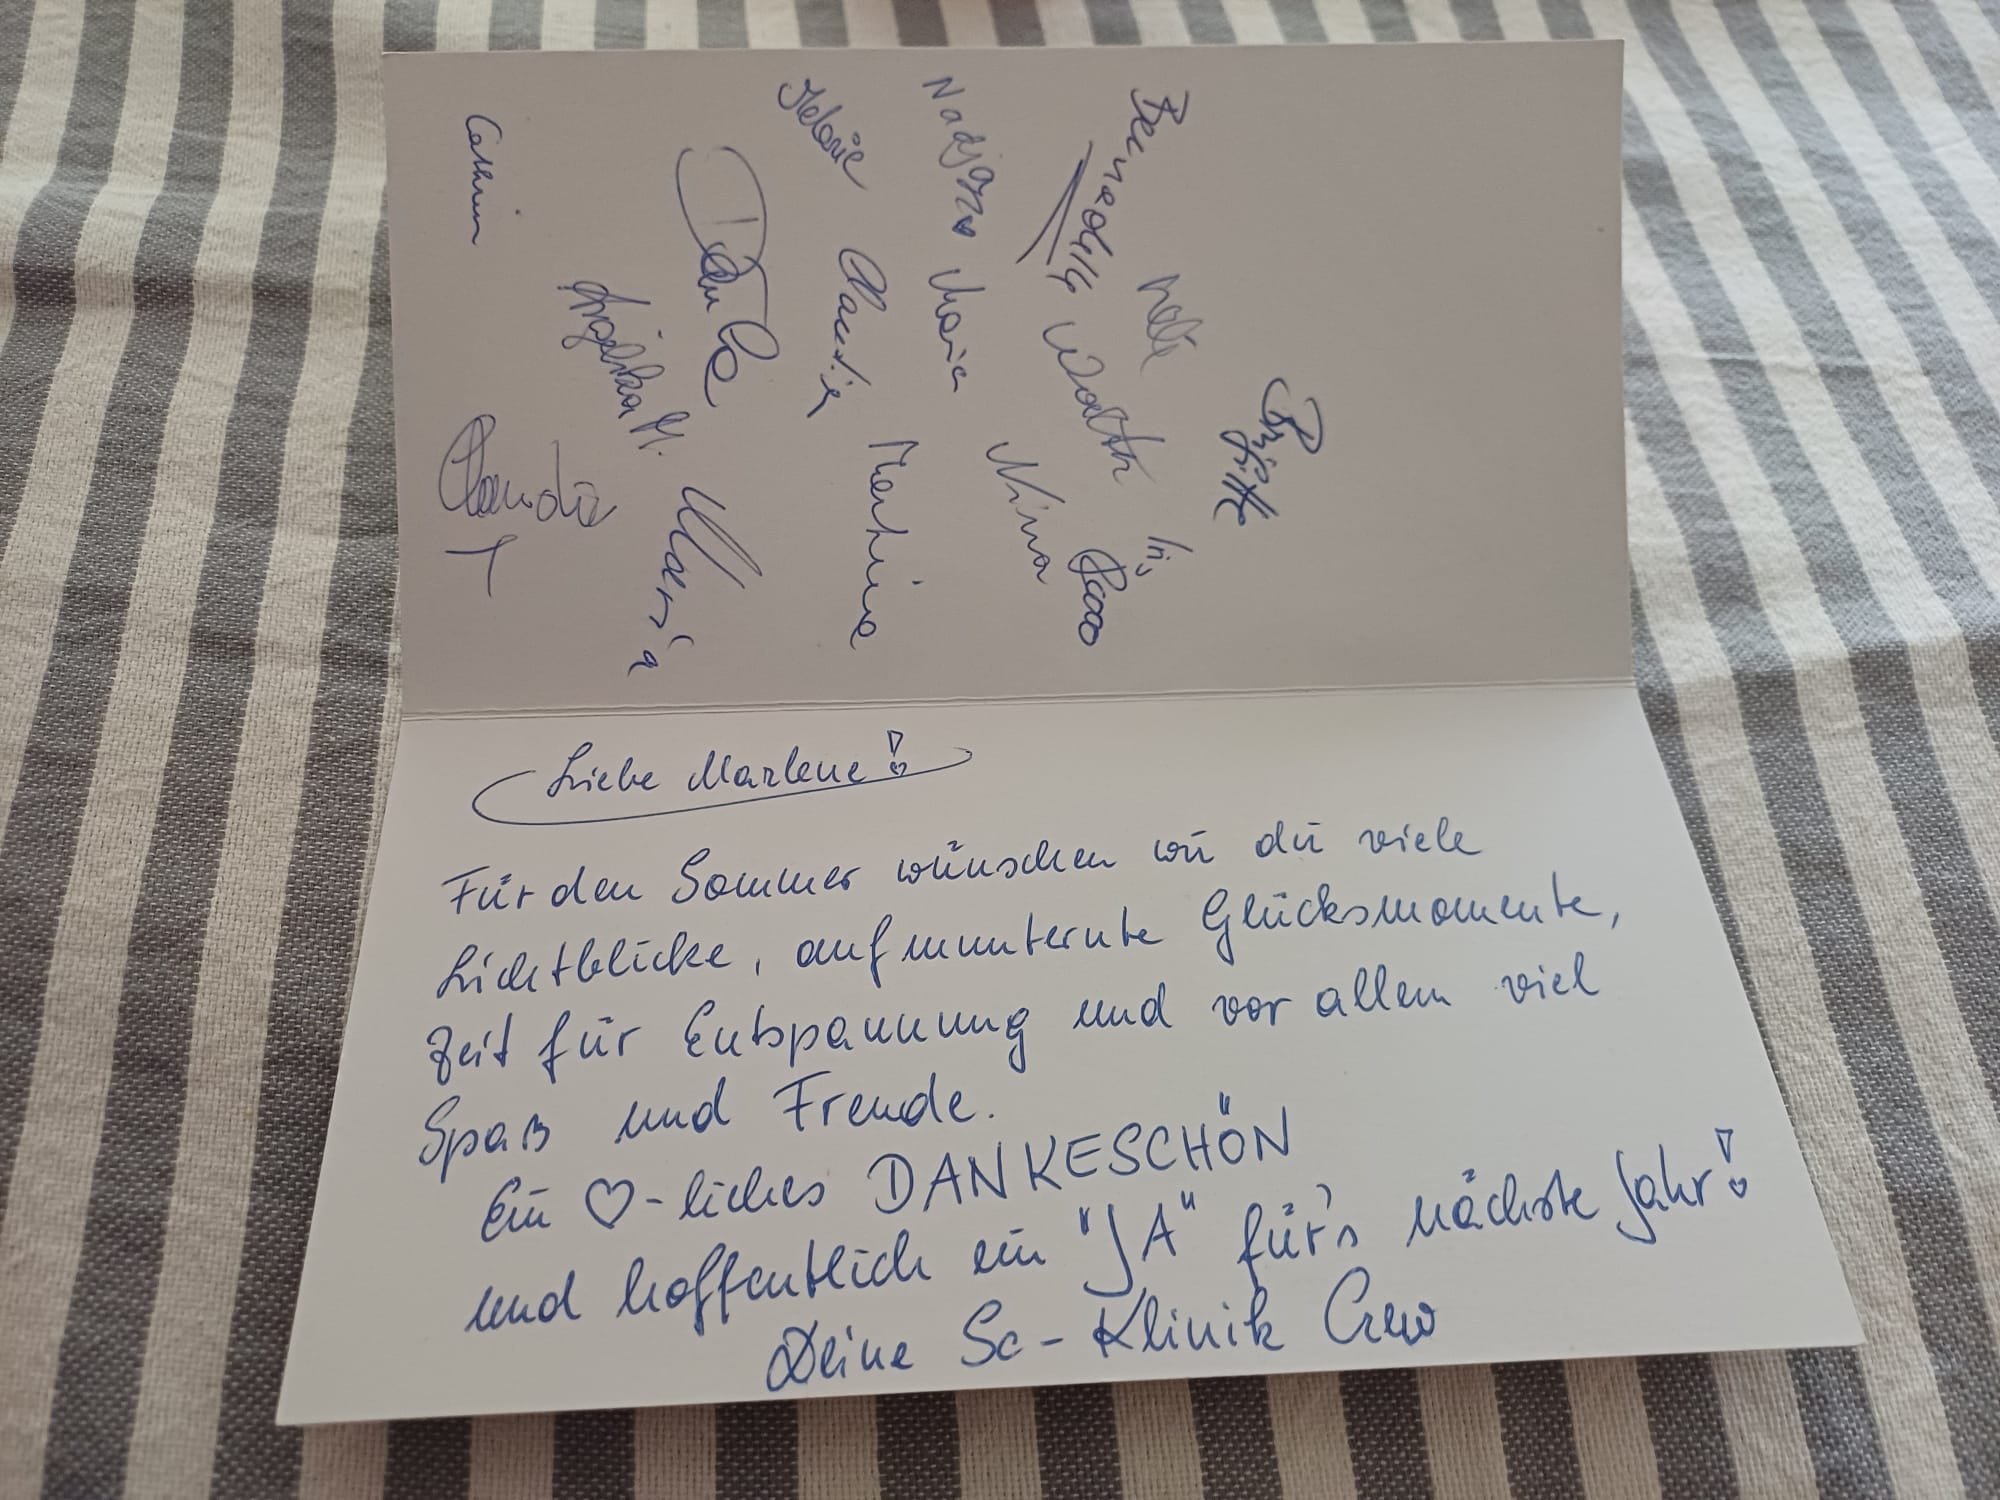 Cathrin
Claudia
Angelika M.
Danke
Maria
Melanie
Claudia
Martina
Nadja
Maria
Nina
Bernadette
Iris
Brigitte
Liebe Marlene!
Für den Sommer wünschen wir dir viele
Lichtblicke, aufmunternte Glücksmomente,
Zeit für Entspannung und vor allem viel
Spaß und Freude.
Ein ♡-liches DANKESCHÖN
und hoffentlich ein "JA" für's nächste Jahr!
Deine Sc-Klinik Crew